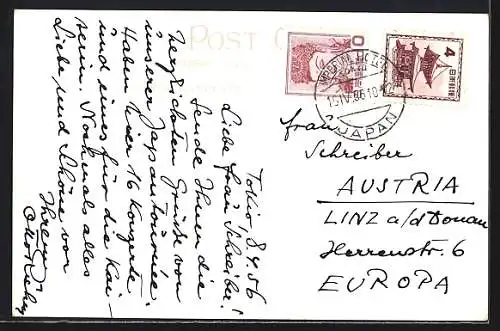 POST C
Tokio 8.4.56
Liebe Frau Schreiber!
Sende Ihnen die
herzlichsten Grüße von
unserer Japantournée.
Haben hier 16 Konzerte
und eines für die Kai-
serin. Nochmals alles
Liebe und Schöne von
Ihrem
Otto
IMPERIAL HOTEL
10.IV.56 10
JAPAN
0
4
日本郵便
Frau
Schreiber
AUSTRIA
LINZ a/d Donau
Herrenstr. 6
EUROPA